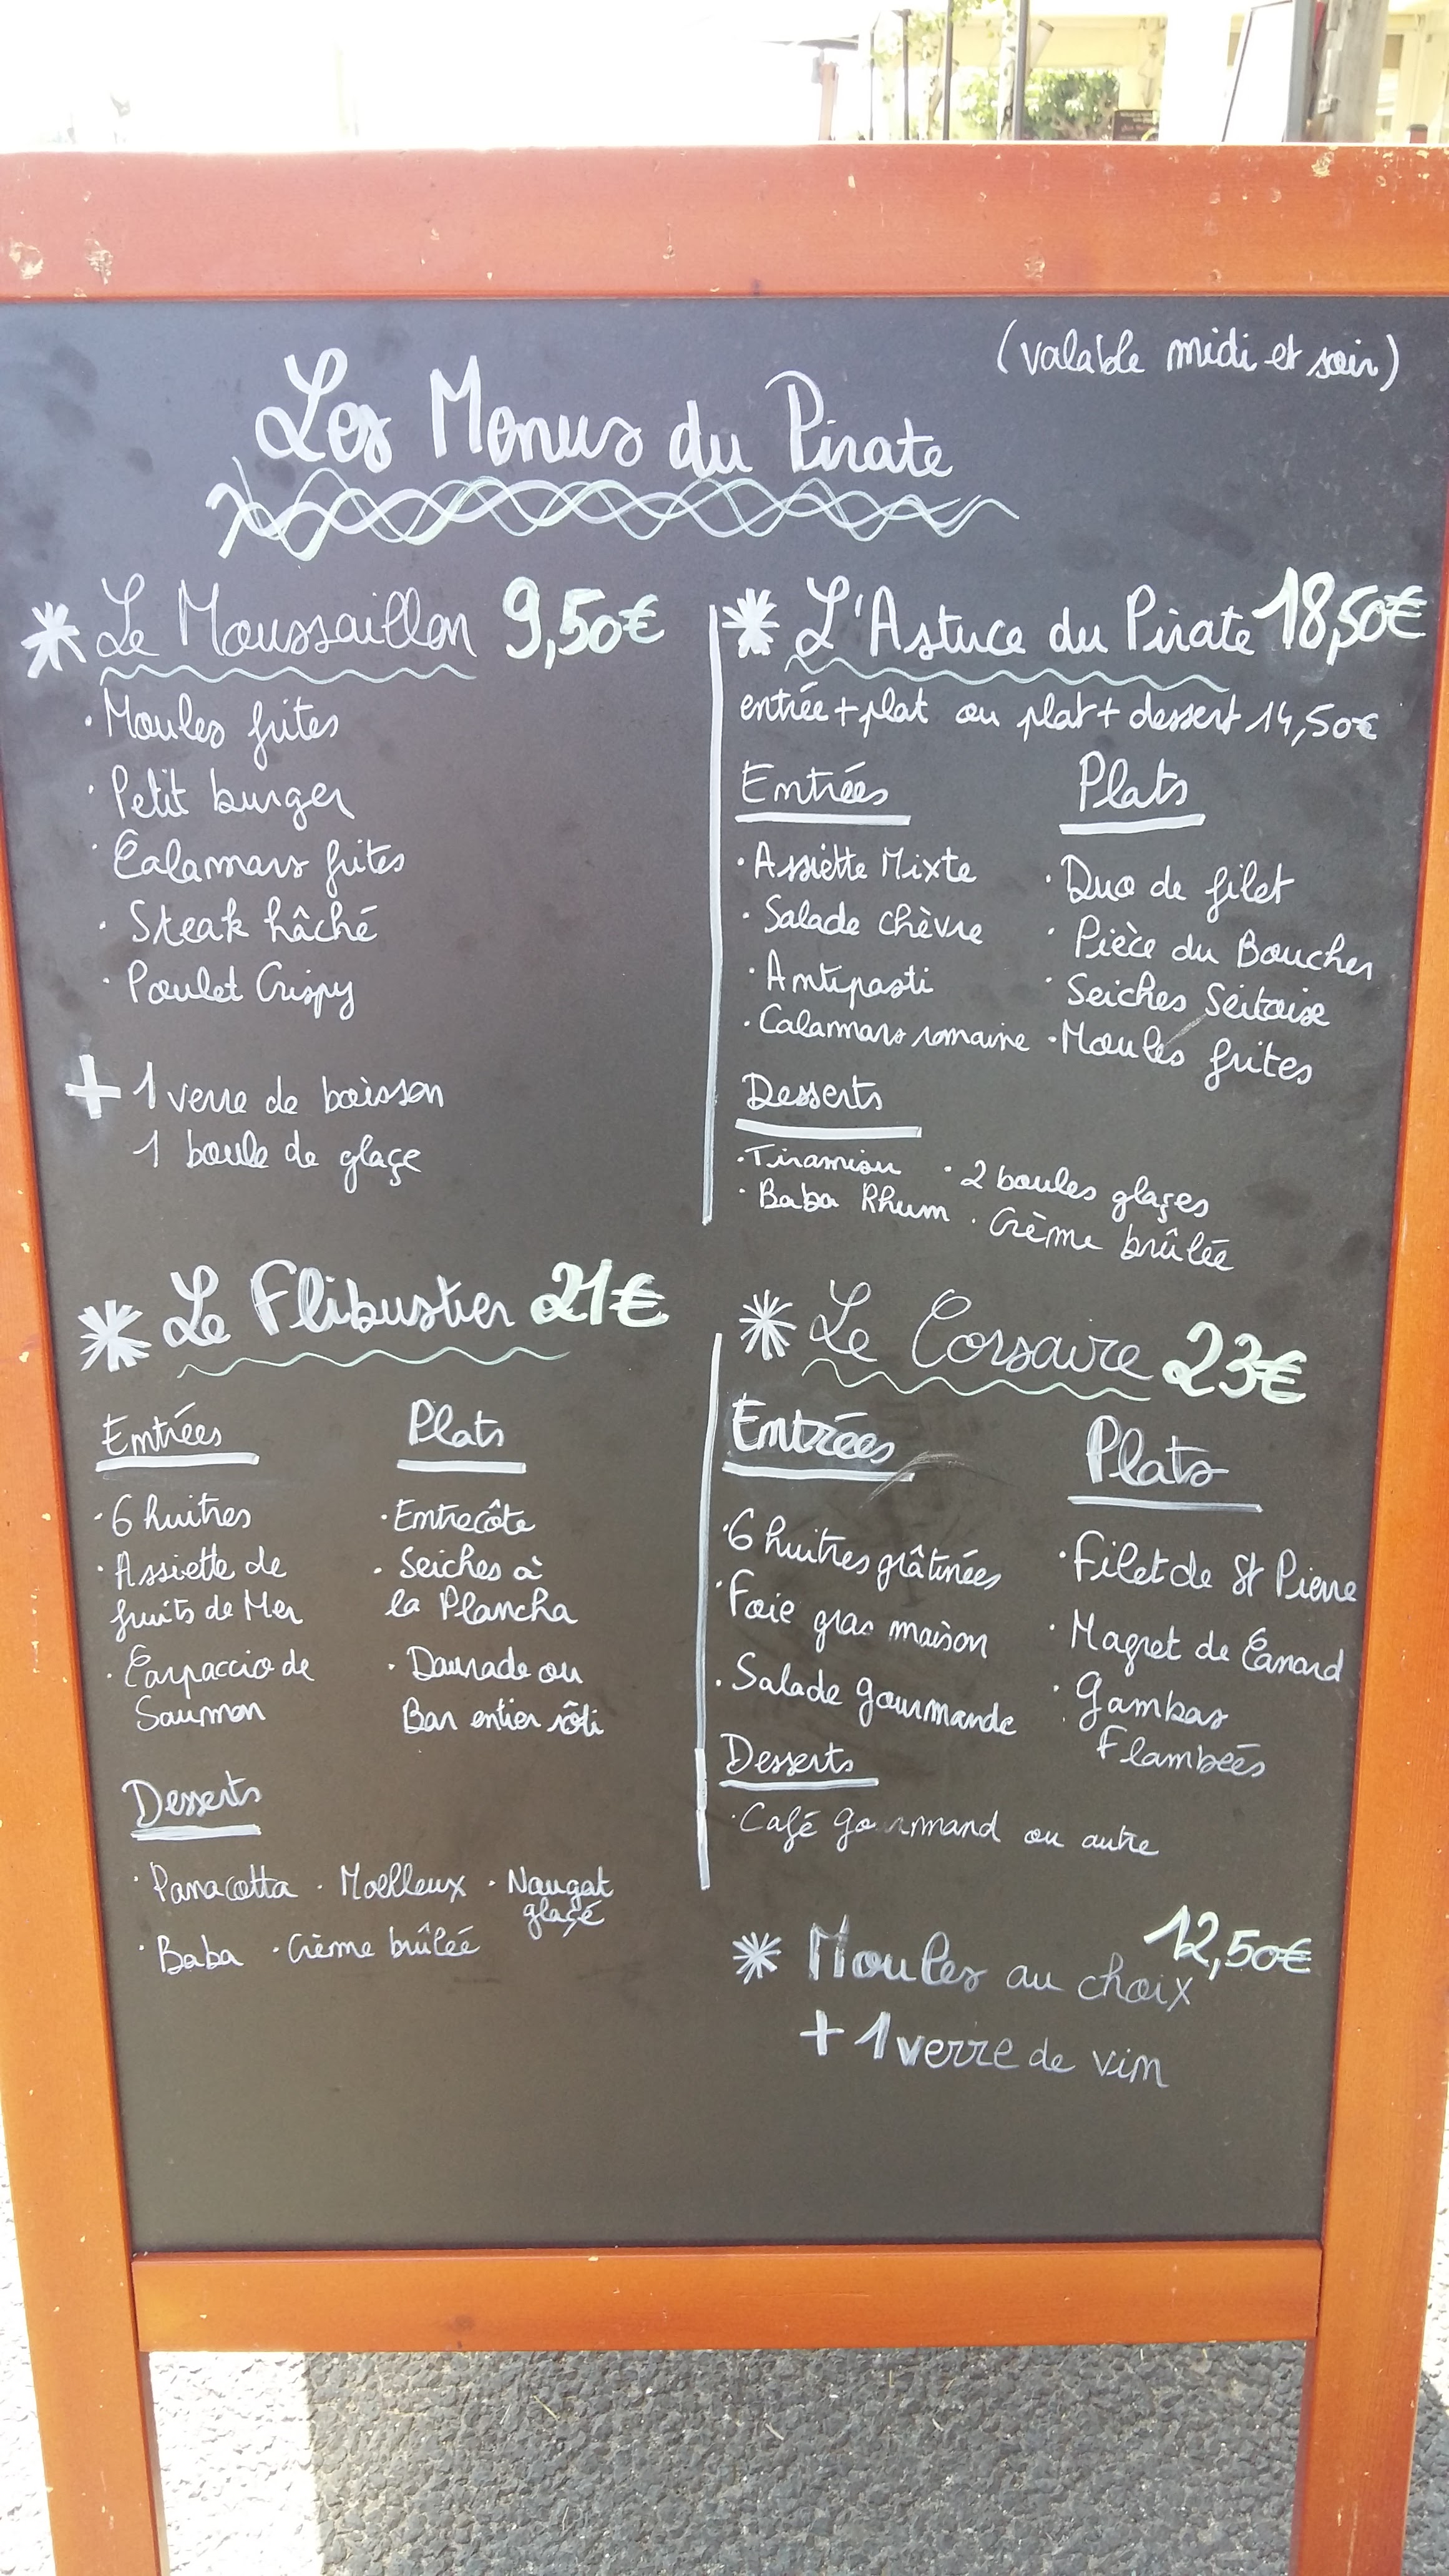 (valable midi et soir)
Les Menus du Pirate
* Le Moussaillon 9,50€
· Moules frites
· Petit burger
· Calamars frites
· Steak hâché
· Poulet Crispy
+ 1 verre de boisson
1 boule de glaçe
* L'Astuce du Pirate 18,50€
entrée + plat ou plat + dessert 14,50€
Entrées
· Assiètte Mixte
· Salade chèvre
· Antipasti
· Calamars romaine
Plats
· Duo de filet
· Pièce du Boucher
· Seiches Sétoise
· Moules frites
Desserts
· Tiramisu · 2 boules glaçes
· Baba Rhum · Crème brûlée
* Le Flibustier 21€
Entrées
· 6 huitres
· Assiette de
fruits de Mer
· Carpaccio de
Saumon
Plats
· Entrecôte
· Seiches à
la Plancha
· Daurade ou
Bar entier rôti
Desserts
· Panacotta · Moelleux · Nougat
glaçé
· Baba · Crème brûlée
* Le Corsaire 23€
Entrées
· 6 huitres grâtinées
· Foie gras maison
· Salade gourmande
Plats
· Filet de St Pierre
· Magret de Canard
· Gambas
Flambées
Desserts
· Café gourmand ou autre
* Moules au choix 12,50€
+ 1 verre de vin